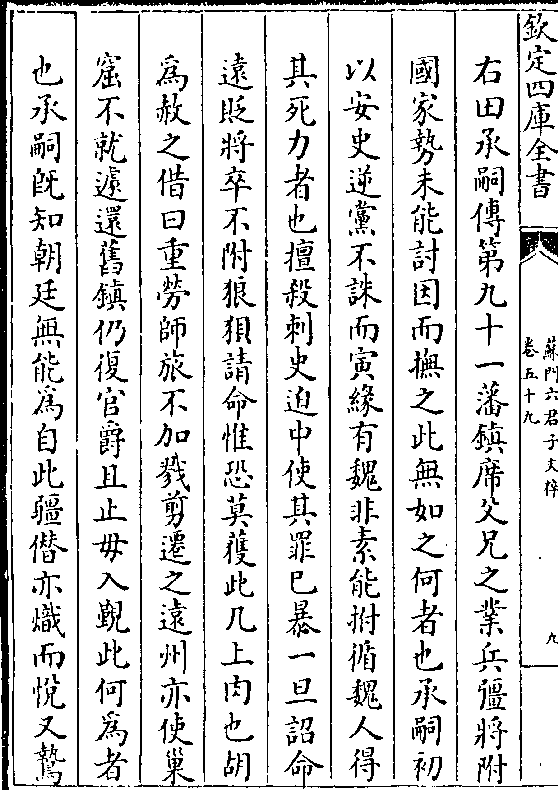 欽定四庫全書
蘇門六君子文粹
卷五十九
九
右田承嗣傳第九十一藩鎮席父兄之業兵彊將附
國家勢未能討因而撫之此無如之何者也承嗣初
以安史逆黨不誅而寅緣有魏非素能拊循魏人得
其死力者也擅殺刺史迫中使其罪已暴一旦詔命
遠貶將卒不附狼狽請命惟恐莫獲此几上肉也胡
爲赦之借曰重勞師旅不加戮剪遷之遠州亦使巢
窟不就遽還舊鎮仍復官爵且止毋入覲此何爲者
也承嗣旣知朝廷無能爲自此彊僭亦熾而悅又驁